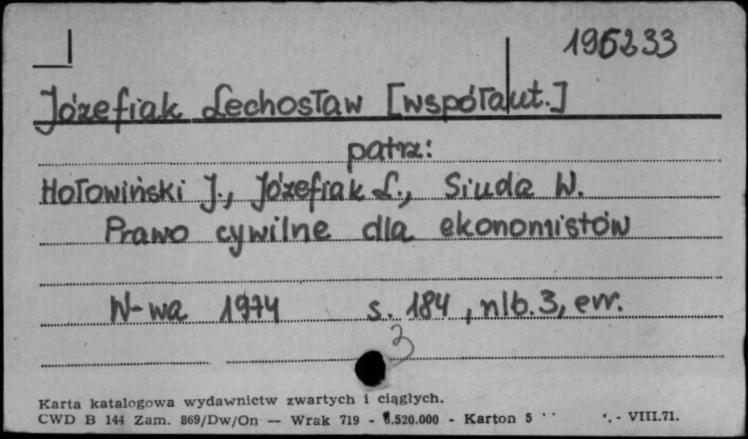 196233
Józefiak Lechosław [współaut.]
patrz:
Hołowiński J., Józefiak L., Siuda W.
Prawo cywilne dla ekonomistów
W-wa 1974 s. 184, nlb. 3, err.
3
Karta katalogowa wydawnictw zwartych i ciągłych.
CWD B 144 Zam. 869/Dw/On — Wrak 719 - 6.520.000 - Karton 5 - VIII.71.